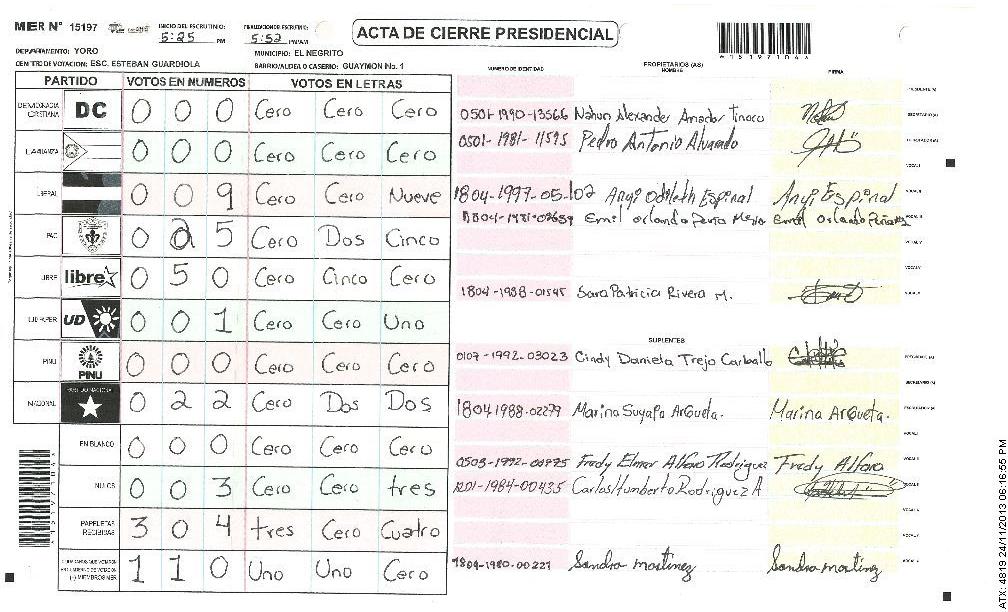 MER Nº 15197 INICIO DEL ESCRUTINIO: 5:25 PM FINALIZACION ESCRUTINIO: 5:52 PM/AM ACTA DE CIERRE PRESIDENCIAL
DEPARTAMENTO: YORO MUNICIPIO: EL NEGRITO
CENTRO DE VOTACION: ESC. ESTEBAN GUARDIOLA BARRIO/ALDEA O CASERIO: GUAYMON No. 1
PARTIDO VOTOS EN NUMEROS VOTOS EN LETRAS
DEMOCRACIA CRISTIANA DC 0 0 0 Cero Cero Cero
0 0 0 Cero Cero Cero
LIBERAL 0 0 9 Cero Cero Nueve
PAC 0 2 5 Cero Dos Cinco
LIBRE libre 0 5 0 Cero Cinco Cero
UD 0 0 1 Cero Cero Uno
PINU PINU 0 0 0 Cero Cero Cero
NACIONAL PARTIDO NACIONAL 0 2 2 Cero Dos Dos
EN BLANCO 0 0 0 Cero Cero Cero
NULOS 0 0 3 Cero Cero tres
PAPELETAS RECIBIDAS 3 0 4 tres Cero Cuatro
1 1 0 Uno Uno Cero
NUMERO DE IDENTIDAD PROPIETARIOS (AS) NOMBRE FIRMA
0501-1990-13566 Nahun Alexander Amador Tinoco
0501-1981-11595 Pedro Antonio Alvarado
1804-1997-05102 Angi Odileth Espinal Angi Espinal
Emil Orlando Emil Orlando
1804-1988-01545 Sara Patricia Rivera M.
SUPLENTES
0107-1992-03023 Cindy Daniela Trejo Carballo
1804 1988-02279 Marina Suyapa Argueta. Marina Argueta.
0503-1992-00775 Fredy Elmer Alfaro Rodriguez Fredy Alfaro
1201-1984-00435 Carlos Humberto Rodriguez A
1804-1980-00227 Sandra martinez Sandra martinez
151971043
ATX: 4819 24/11/2013 06:16:55 PM